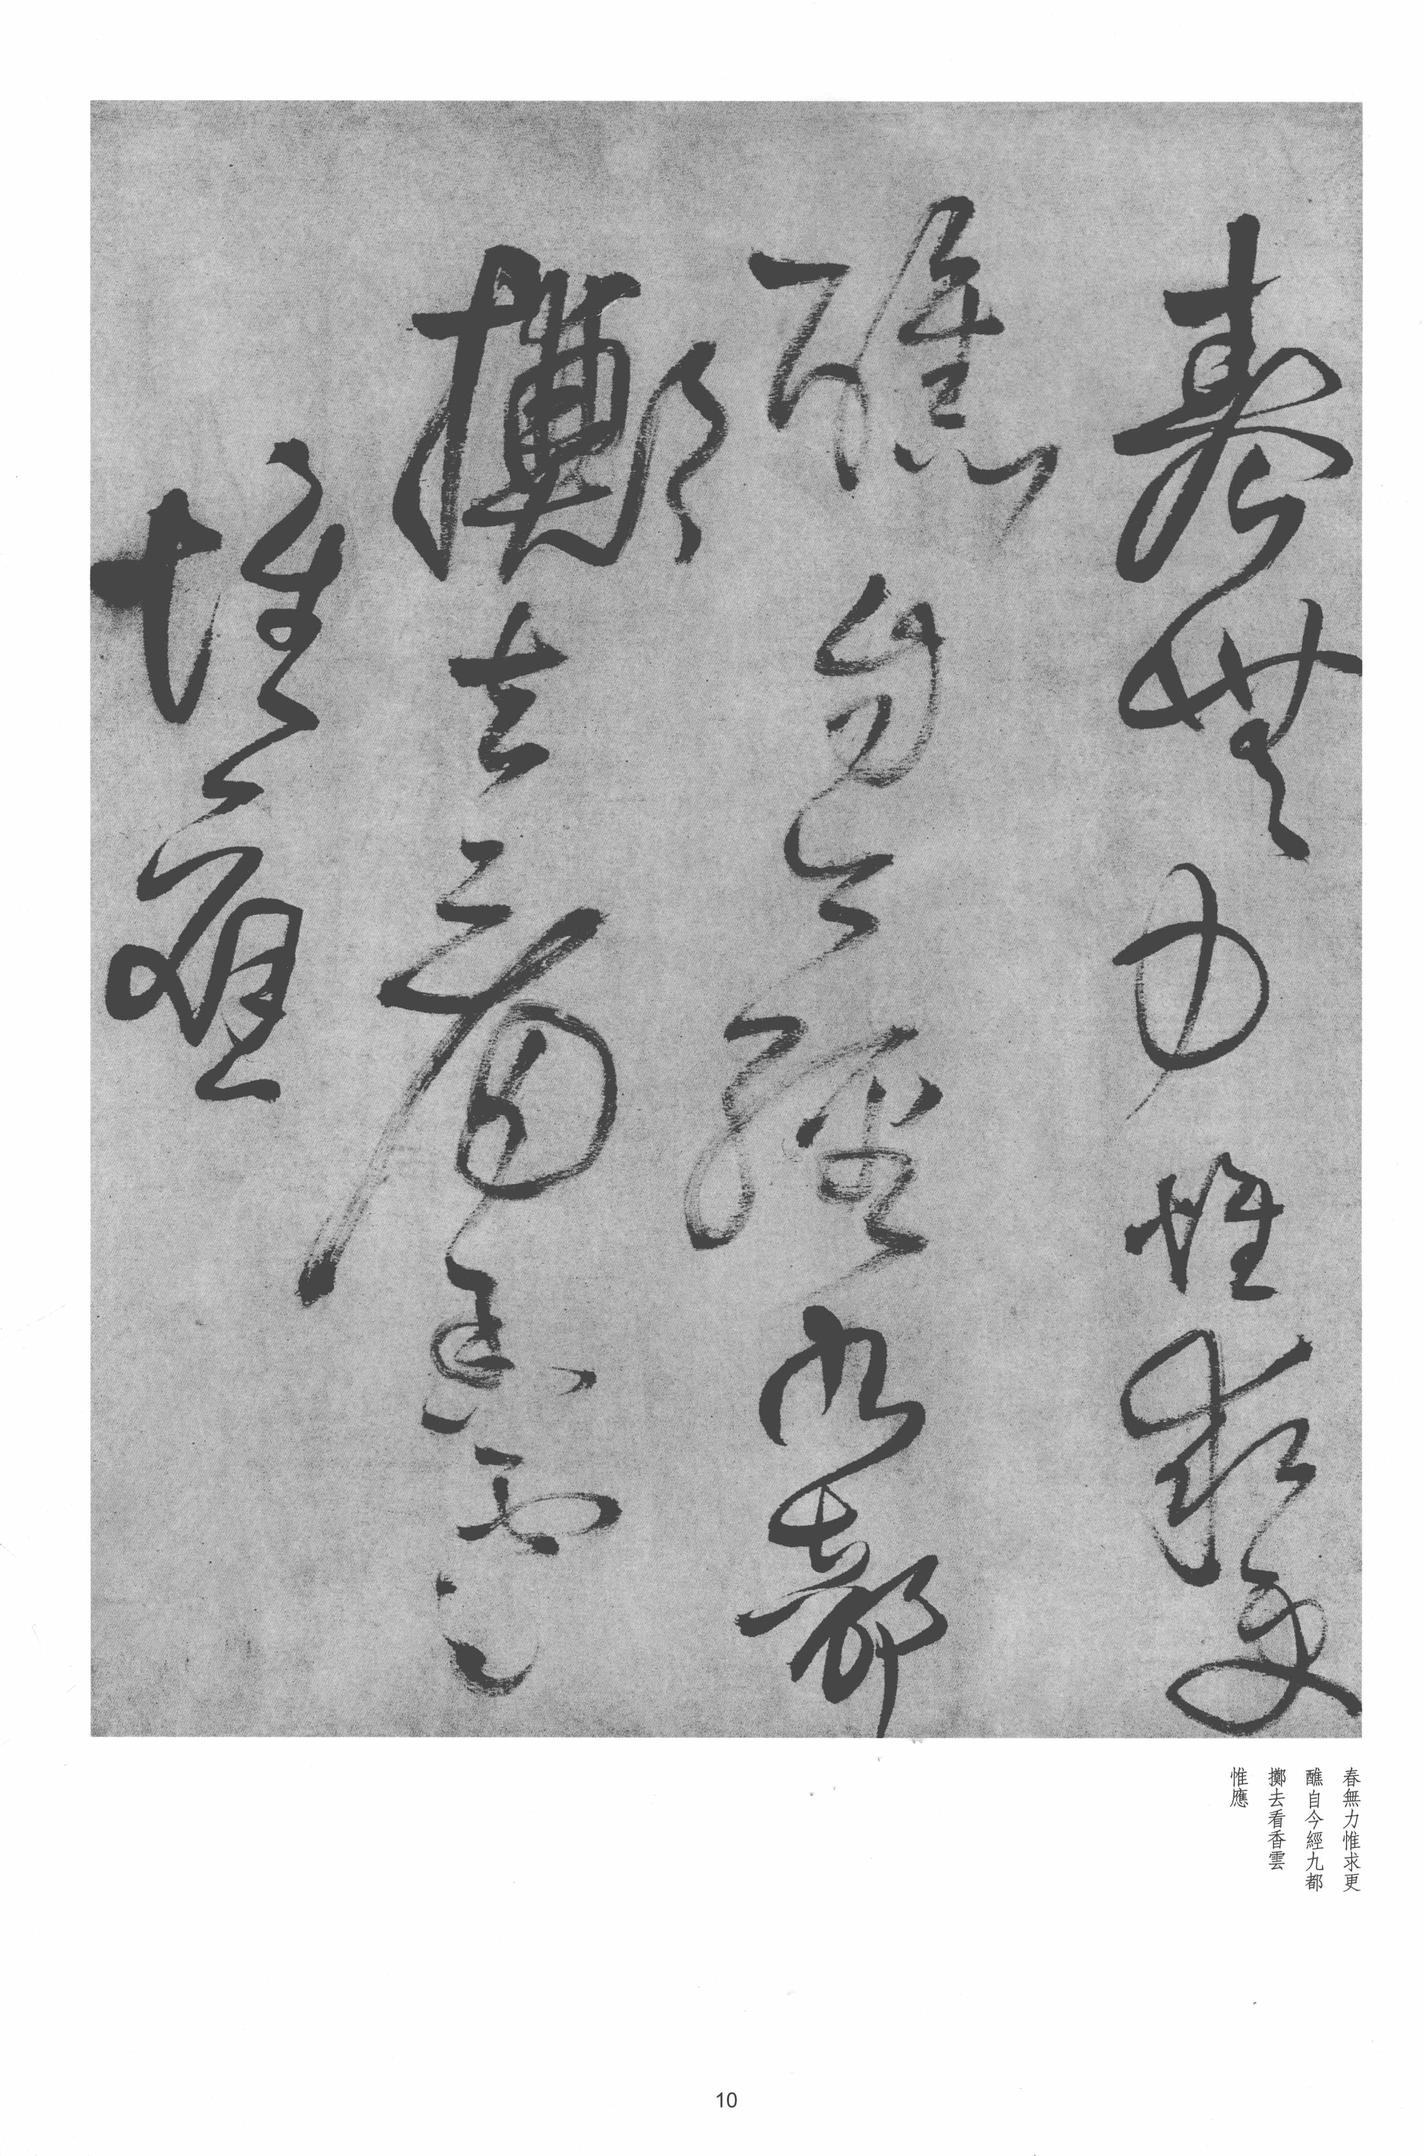 春無力惟求更
醮自今經九都
擲去看香雲
惟應
春無力惟求更
醮自今經九都
擲去看香雲
惟應
10